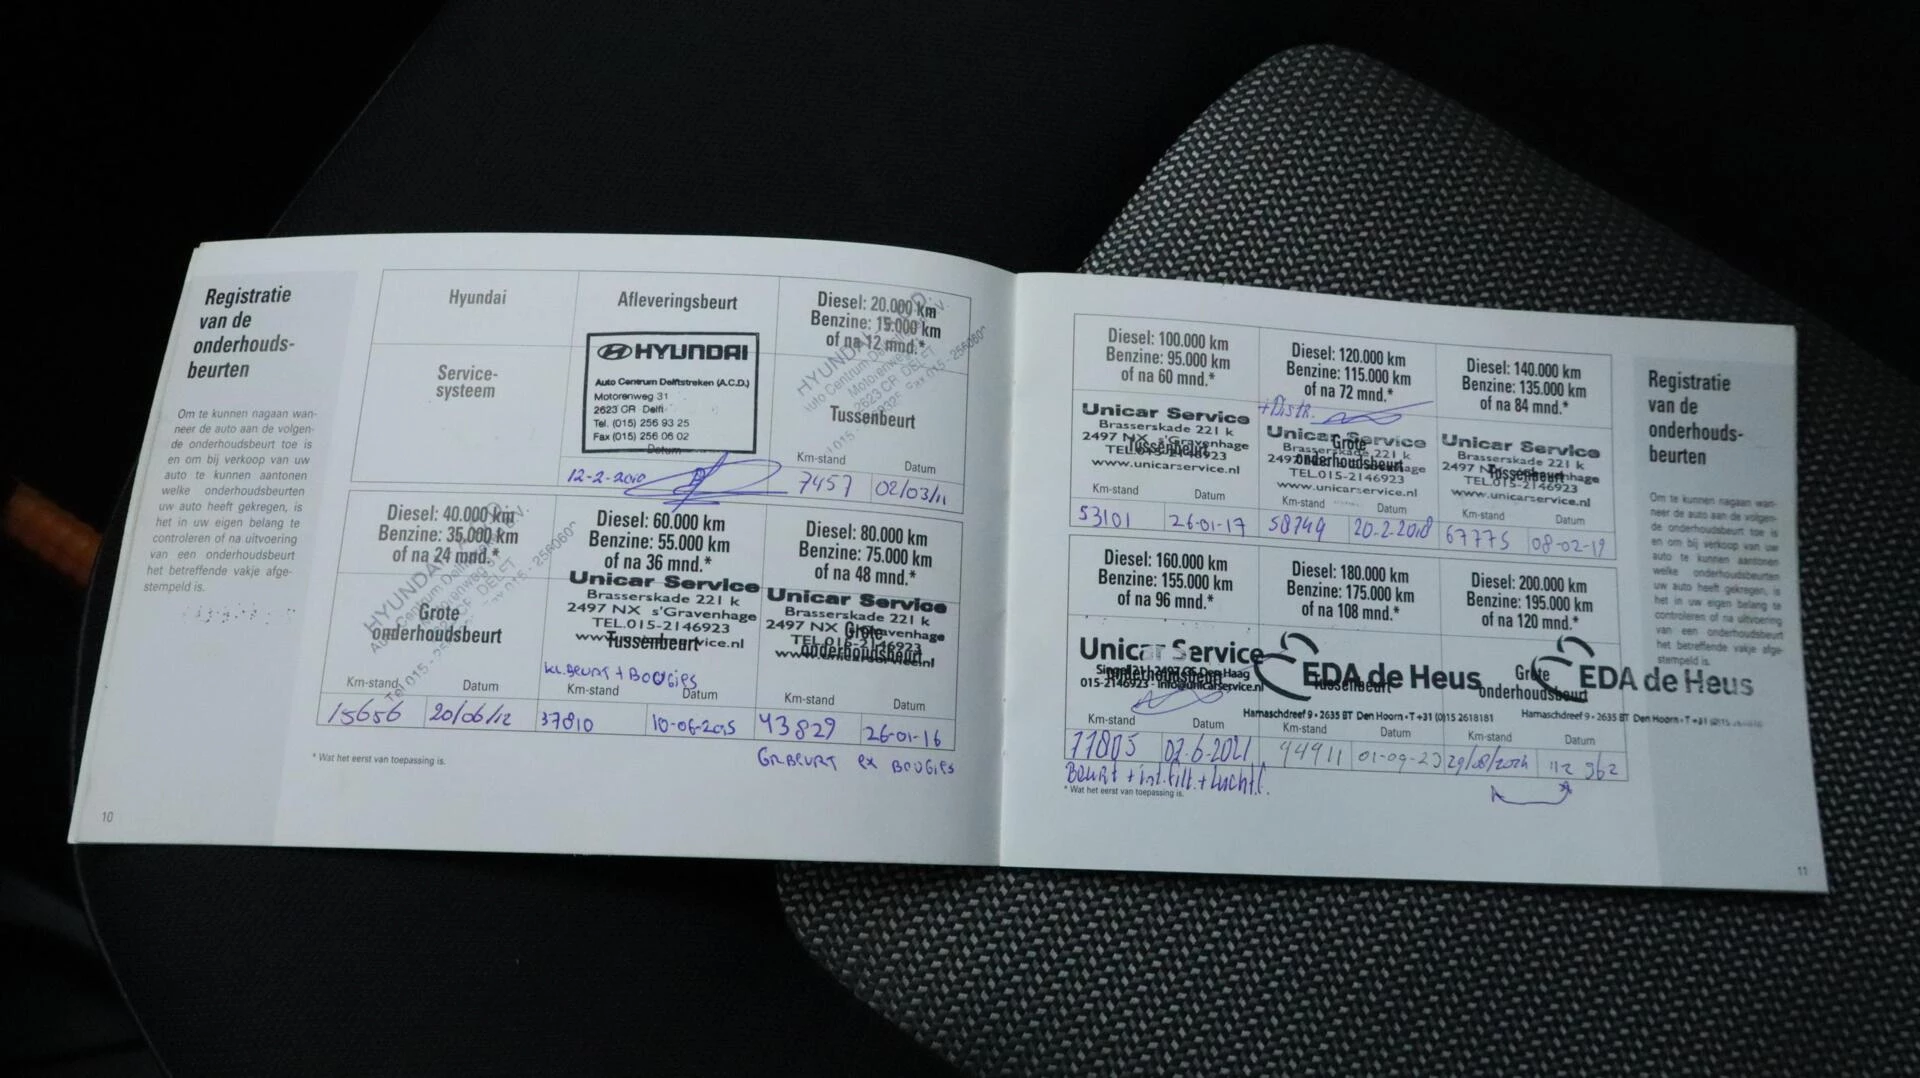 Registratie
van de
onderhouds-
beurten
Om te kunnen nagaan wan-
neer de auto aan de volgen-
de onderhoudsbeurt toe is
en om bij verkoop van uw
auto te kunnen aantonen
welke onderhoudsbeurten
uw auto heeft gekregen, is
het in uw eigen belang te
controleren of na uitvoering
van een onderhoudsbeurt
het betreffende vakje afge-
stempeld is.
10
Hyundai
Service-
systeem
Afleveringsbeurt
HYUNDAI
Auto Centrum Delftstreken (A.C.D.)
Motorenweg 31
2623 CR Delft
Tel. (015) 256 93 25
Fax (015) 256 06 02
Datum
12-2-2010
Diesel: 20.000 km
Benzine: 15.000 km
of na 12 mnd.*
Tussenbeurt
Km-stand
Datum
7457
02/03/11
Diesel: 40.000 km
Benzine: 35.000 km
of na 24 mnd.*
Grote
onderhoudsbeurt
Km-stand
Datum
15656
20/06/12
Diesel: 60.000 km
Benzine: 55.000 km
of na 36 mnd.*
Unicar Service
Brasserskade 221 k
2497 NX s'Gravenhage
TEL.015-2146923
Tussenbeurt
KL.BEURT + BOUGIES
Km-stand
Datum
37810
10-06-2015
Diesel: 80.000 km
Benzine: 75.000 km
of na 48 mnd.*
Unicar Service
Brasserskade 221 k
2497 NX s'Gravenhage
TEL.015-2146923
www.unicarservice.nl
Grote
onderhoudsbeurt
Km-stand
Datum
43829
26-01-16
GR.BEURT ex BOUGIES
* Wat het eerst van toepassing is.
Diesel: 100.000 km
Benzine: 95.000 km
of na 60 mnd.*
Unicar Service
Brasserskade 221 k
2497 NX s'Gravenhage
Tussenbeurt
TEL.015-2146923
www.unicarservice.nl
Km-stand
Datum
53101
26-01-17
Diesel: 120.000 km
Benzine: 115.000 km
of na 72 mnd.*
+Distr.
Unicar Service
Brasserskade 221 k
Grote
onderhoudsbeurt
TEL.015-2146923
www.unicarservice.nl
Km-stand
Datum
58749
20.2.2018
Diesel: 140.000 km
Benzine: 135.000 km
of na 84 mnd.*
Unicar Service
Brasserskade 221 k
Tussenbeurt
TEL.015-2146923
www.unicarservice.nl
Km-stand
Datum
67775
08-02-19
Diesel: 160.000 km
Benzine: 155.000 km
of na 96 mnd.*
Unicar Service
onderhoudsbeurt
015-2146923 - info@unicarservice.nl
Km-stand
Datum
77805
02-6-2021
BEURT + int.filt. + Luchtf.
Diesel: 180.000 km
Benzine: 175.000 km
of na 108 mnd.*
EDA de Heus
Tussenbeurt
Hamaschdreef 9 • 2635 BT Den Hoorn • T +31 (0)15 2618181
Km-stand
Datum
94911
01-09-23
Diesel: 200.000 km
Benzine: 195.000 km
of na 120 mnd.*
Grote
onderhoudsbeurt
EDA de Heus
Hamaschdreef 9 • 2635 BT Den Hoorn • T +31
Km-stand
Datum
29/08/2024
112 962
* Wat het eerst van toepassing is.
Registratie
van de
onderhouds-
beurten
Om te kunnen nagaan wan-
neer de auto aan de volgen-
de onderhoudsbeurt toe is
en om bij verkoop van uw
auto te kunnen aantonen
welke onderhoudsbeurten
uw auto heeft gekregen, is
het in uw eigen belang te
controleren of na uitvoering
van een onderhoudsbeurt
het betreffende vakje afge-
stempeld is.
11